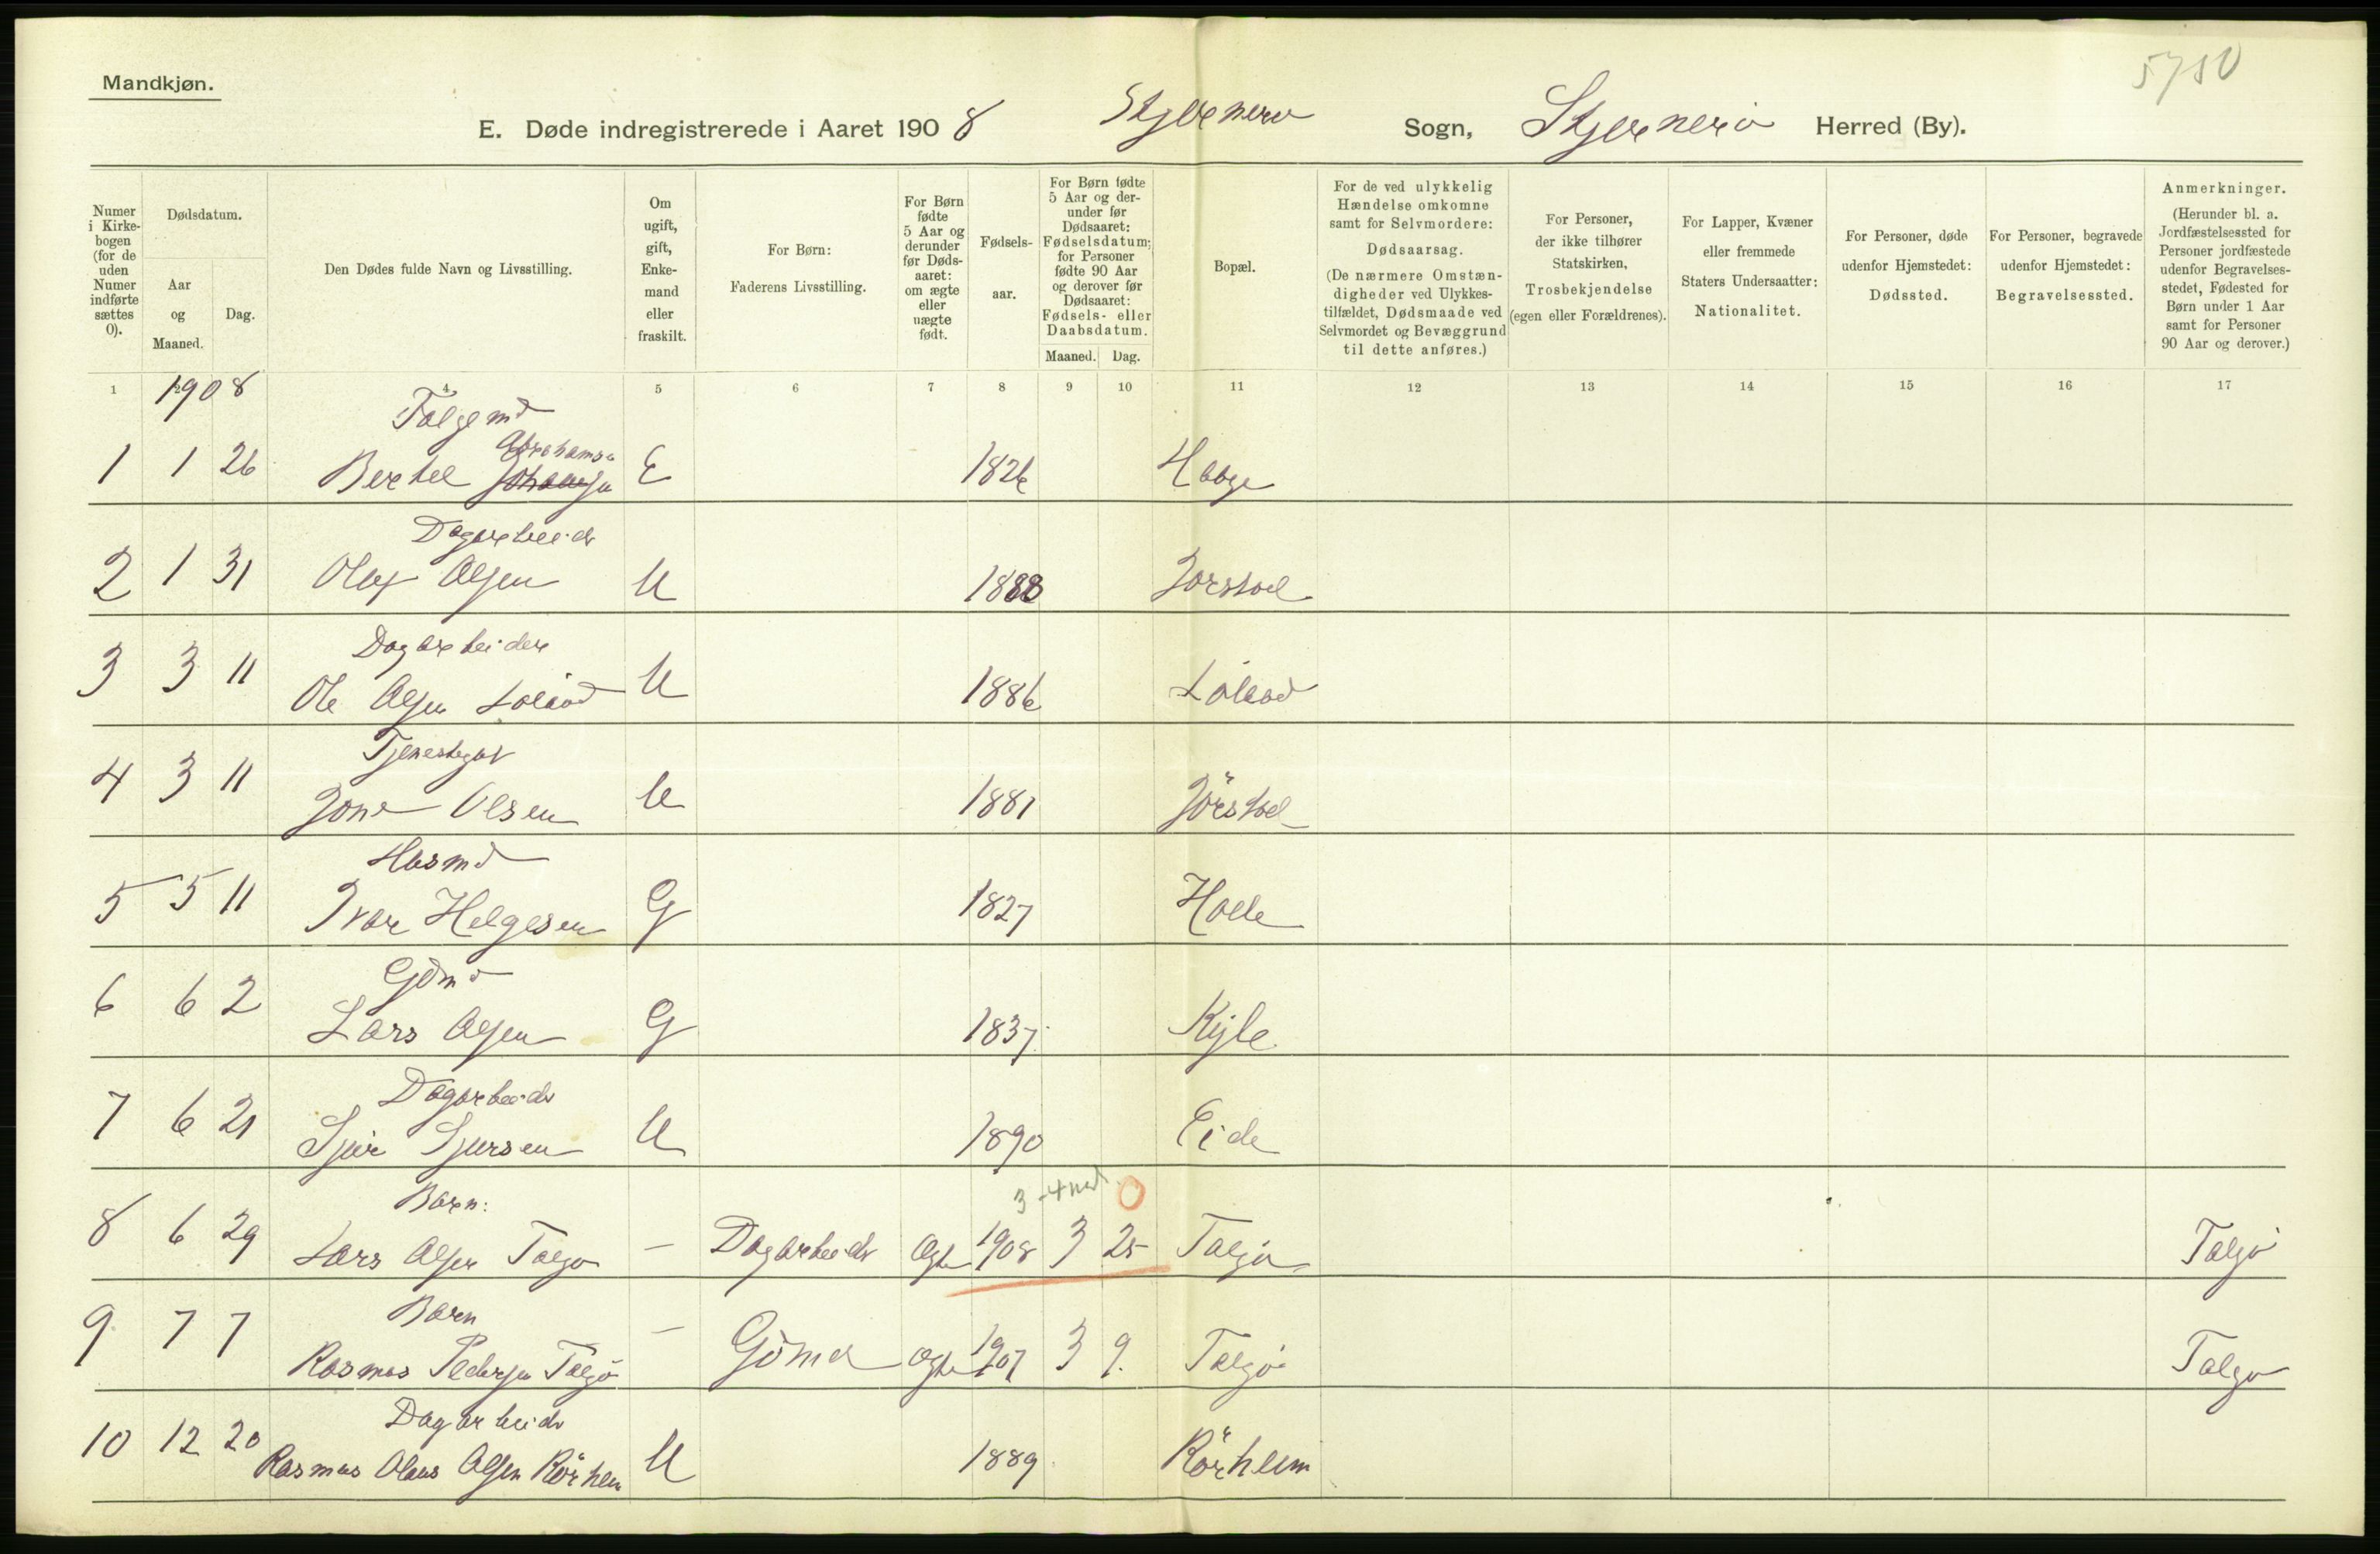 Mandkjøn.
5750
E. Døde indregistrerede i Aaret 1908 Stjernerø Sogn, Stjernerø Herred (By).
Numer i Kirkebogen (for de uden Numer indførte sættes 0).
Dødsdatum.
Aar og Maaned.
Dag.
Den Dødes fulde Navn og Livsstilling.
Om ugift, gift, Enkemand eller fraskilt.
For Børn: Faderens Livsstilling.
For Børn fødte 5 Aar og derunder før Dødsaaret: om ægte eller uægte født.
Fødselsaar.
For Børn fødte 5 Aar og derunder før Dødsaaret: Fødselsdatum; for Personer fødte 90 Aar og derover før Dødsaaret: Fødsels- eller Daabsdatum.
Maaned. Dag.
Bopæl.
For de ved ulykkelig Hændelse omkomne samt for Selvmordere: Dødsaarsag. (De nærmere Omstændigheder ved Ulykkestilfældet, Dødsmaade ved Selvmordet og Bevæggrund til dette anføres.)
For Personer, der ikke tilhører Statskirken, Trosbekjendelse (egen eller Forældrenes).
For Lapper, Kvæner eller fremmede Staters Undersaatter: Nationalitet.
For Personer, døde udenfor Hjemstedet: Dødssted.
For Personer, begravede udenfor Hjemstedet: Begravelsessted.
Anmerkninger. (Herunder bl. a. Jordfæstelsessted for Personer jordfæstede udenfor Begravelsesstedet, Fødested for Børn under 1 Aar samt for Personer 90 Aar og derover.)
1 2 4 5 6 7 8 9 10 11 12 13 14 15 16 17
1908
Følgemd
Abrahams.
1 1 26 Bertel Johansen E 1826 Hauge
Dagarbeider
2 1 31 Olaf Olsen U 1888 Jørstad
Dagarbeider
3 3 11 Ole Olsen Løland U 1886 Løland
Tjenestegut
4 3 11 Jone Olsen U 1881 Jørstad
Husmd
5 5 11 Ivar Helgesen G 1827 Halle
Gdmd
6 6 2 Lars Olsen G 1837 Kyle
Dagarbeider
7 6 21 Sjur Sjursen U 1890 Eide
Barn: 3-4 md. 0
8 6 29 Lars Olsen Talgø – Dagarbeider Ægte 1908 3 25 Talgø Talgø
Barn
9 7 7 Rasmus Pedersen Talgø – Gdmd Ægte 1907 3 9. Talgø Talgø
Dagarbeider
10 12 20 Rasmus Olaus Olsen Rørheim U 1889 Rørheim